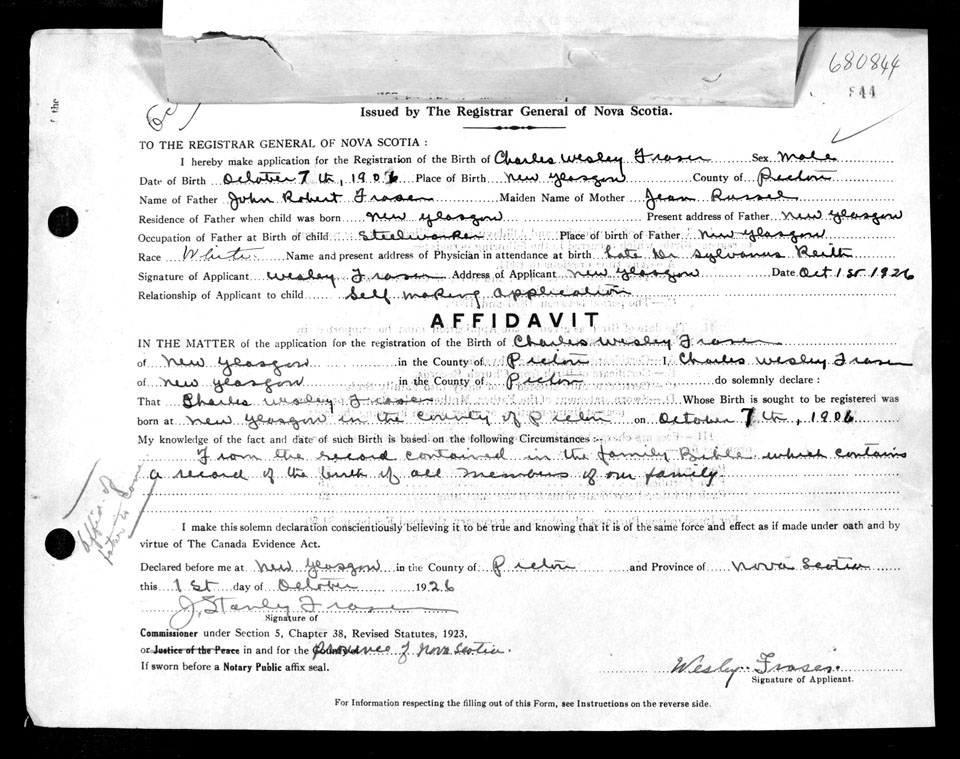 680844
844
the
Issued by The Registrar General of Nova Scotia.
TO THE REGISTRAR GENERAL OF NOVA SCOTIA :
I hereby make application for the Registration of the Birth of Charles Wesley Fraser Sex Male
Date of Birth October 7th, 1906 Place of Birth New Glasgow County of Pictou
Name of Father John Robert Fraser Maiden Name of Mother Jean Russel
Residence of Father when child was born New Glasgow Present address of Father New Glasgow
Occupation of Father at Birth of child Steelworker Place of birth of Father New Glasgow
Race White Name and present address of Physician in attendance at birth Late Dr Sylvanus Keith
Signature of Applicant Wesley Fraser Address of Applicant New Glasgow Date Oct 1st 1926
Relationship of Applicant to child Self making application
AFFIDAVIT
IN THE MATTER of the application for the registration of the Birth of Charles Wesley Fraser
of New Glasgow in the County of Pictou I, Charles Wesley Fraser
of New Glasgow in the County of Pictou do solemnly declare :
That Charles Wesley Fraser Whose Birth is sought to be registered was
born at New Glasgow in the County of Pictou on October 7th, 1906
My knowledge of the fact and date of such Birth is based on the following Circumstances :-
From the record contained in the family Bible which contains
a record of the birth of all members of our family
Affid. of
father to come
I make this solemn declaration conscientiously believing it to be true and knowing that it is of the same force and effect as if made under oath and by
virtue of The Canada Evidence Act.
Declared before me at New Glasgow in the County of Pictou and Province of Nova Scotia
this 1st day of October 1926
J. Stanly Fraser
Signature of
Commissioner under Section 5, Chapter 38, Revised Statutes, 1923,
or Justice of the Peace in and for the province of Nova Scotia.
If sworn before a Notary Public affix seal.
Wesley Fraser.
Signature of Applicant.
For Information respecting the filling out of this Form, see Instructions on the reverse side.